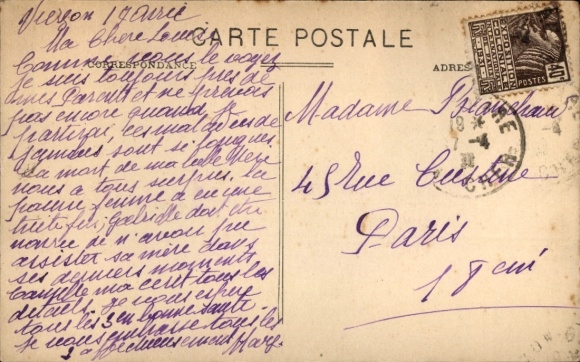 Vierzon 1 Avril
Ma Chère Louise
CARTE POSTALE
CORRESPONDANCE
ADRES
Comme vous le voyez
je suis toujours près de
mes Parents et ne prévois
pas encore quand je
partirai, ces maladies de
sont si longues.
La mort de ma belle Mère
nous a tous surpris, la
pauvre femme a eu une
triste fin, Gabrielle doit être
navrée de n'avoir pu
assister sa mère dans
ses derniers moments
Camille m'a écrit tous les
détails. Je vous espère
tous les 3 en bonne santé
je vous embrasse tous les
3 affectueusement
Madame
45 rue Custine
Paris
18 emé
EXPOSITION COLONIALE INTERNATIONALE
PARIS 1931
POSTES
40c
CHER